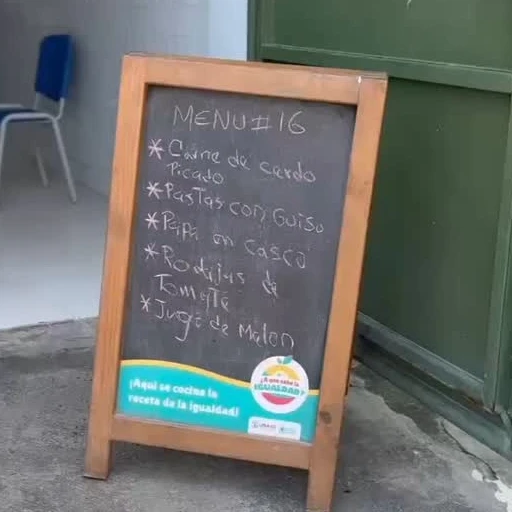 MENU # 16
* Carne de cerdo
Picado
* Pastas con Guiso
* Papa en casco
* Rodajas de
Tomate
* Jugo de Melon
¡Aquí se cocina la
receta de la igualdad!
IGUALDAD?